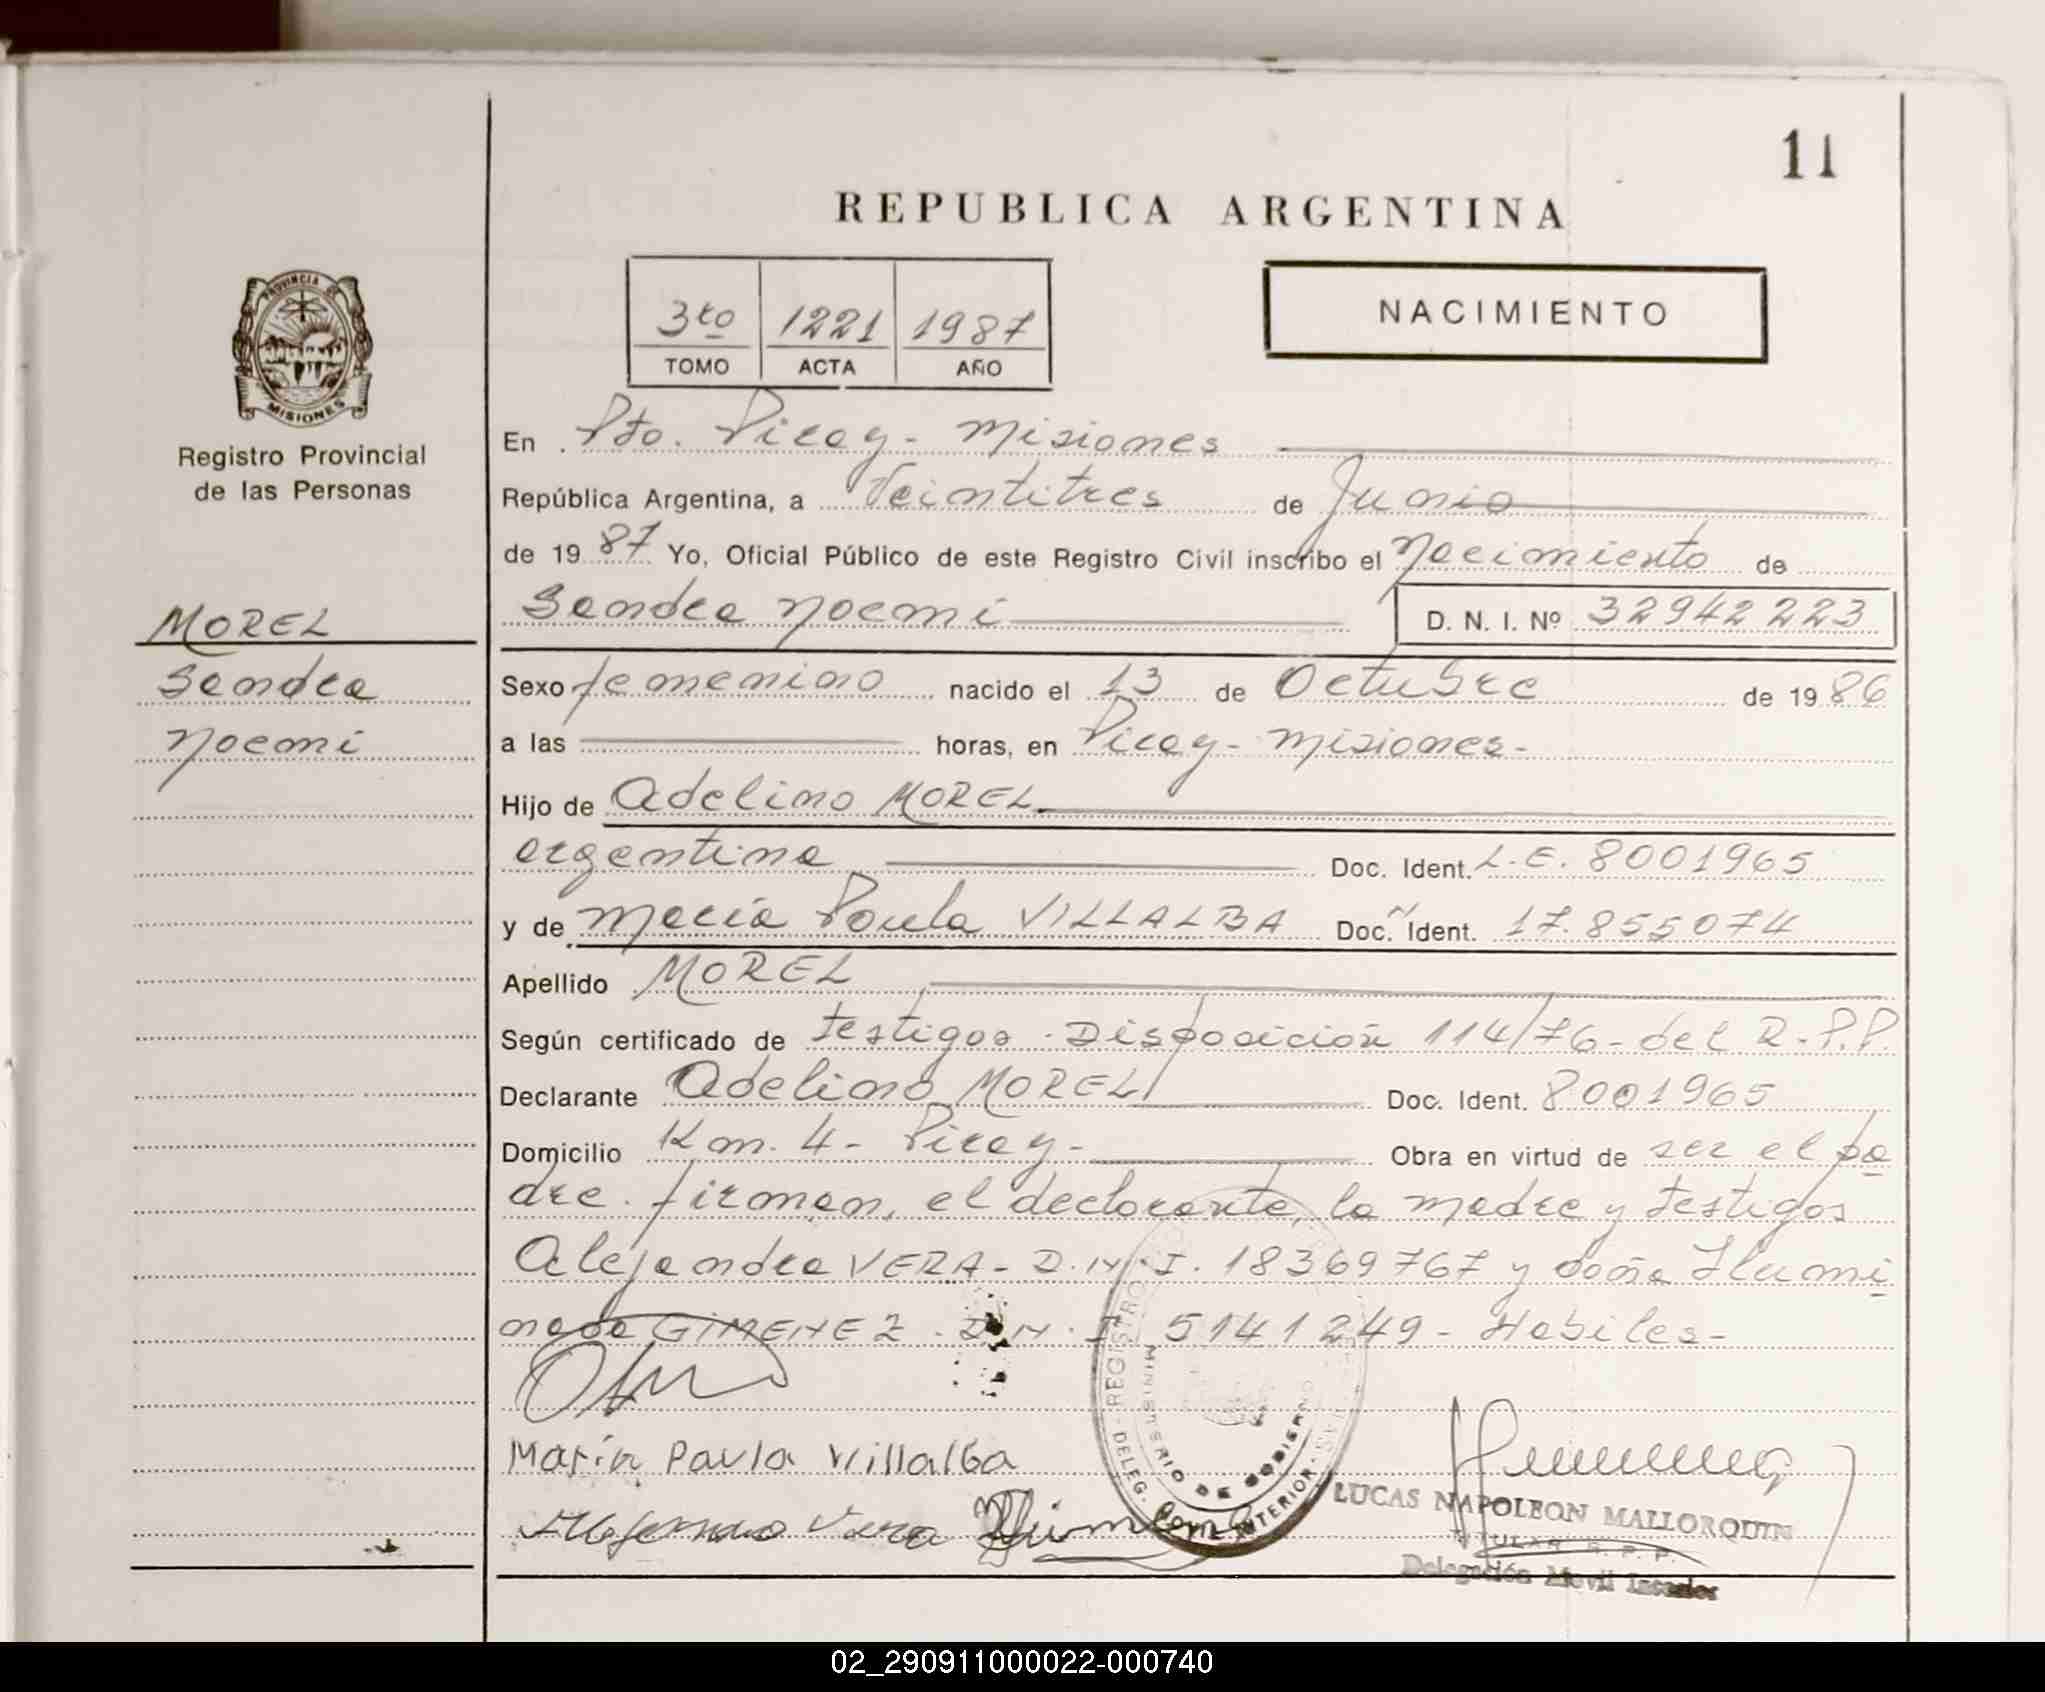 11
REPUBLICA ARGENTINA
3to 1221 1987
TOMO ACTA AÑO
NACIMIENTO
PROVINCIA DE
MISIONES
Registro Provincial
de las Personas
MOREL
Sandra
Noemi
En Pto. Piray - Misiones
República Argentina, a Veintitres de Junio
de 1987 Yo, Oficial Público de este Registro Civil inscribo el Nacimiento de
Sandra Noemi D. N. I. Nº 32942223
Sexo femenino nacido el 13 de Octubre de 1986
a las horas, en Piray - Misiones -
Hijo de Adelino MOREL
argentina Doc. Ident. L.E. 8001965
y de María Paula VILLALBA Doc. Ident. 17.855074
Apellido MOREL
Según certificado de testigos - Disposición 114/76 - del R.P.P.
Declarante Adelino MOREL Doc. Ident. 8001965
Domicilio Km. 4 - Piray - Obra en virtud de ser el pa
dre. firman, el declarante, la madre y testigos
Alejandra VERA - D.N.I. 18369767 y doña Ilumi
nada GIMENEZ - D.N.I. 5141249 - Habiles -
María Paula Villalba
Vera
DELEG. REGISTRO
MINISTERIO DE GOBIERNO
MOVIL INTERIOR
LUCAS NAPOLEON MALLORQUIN
TITULAR R. P. P.
Delegación Movil Interior
02_290911000022-000740